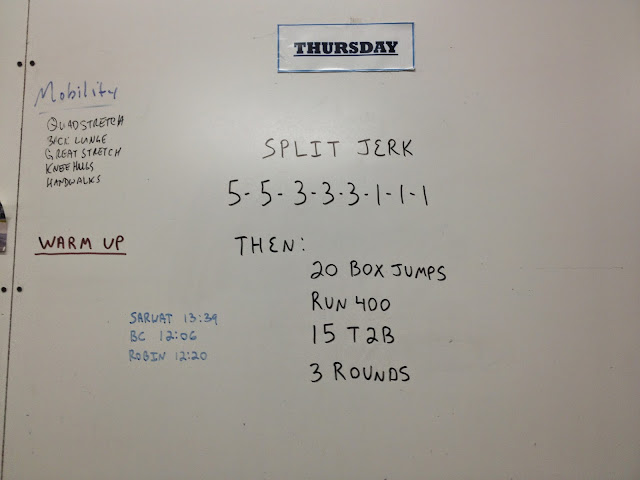 THURSDAY
Mobility
QUADSTRETCH
BACK LUNGE
GREAT STRETCH
KNEE HUGS
HANDWALKS
SPLIT JERK
5-5-3-3-3-1-1-1
WARM UP
THEN:
20 BOX JUMPS
RUN 400
15 T2B
3 ROUNDS
SARWAT 13:39
BC 12:06
ROBIN 12:20